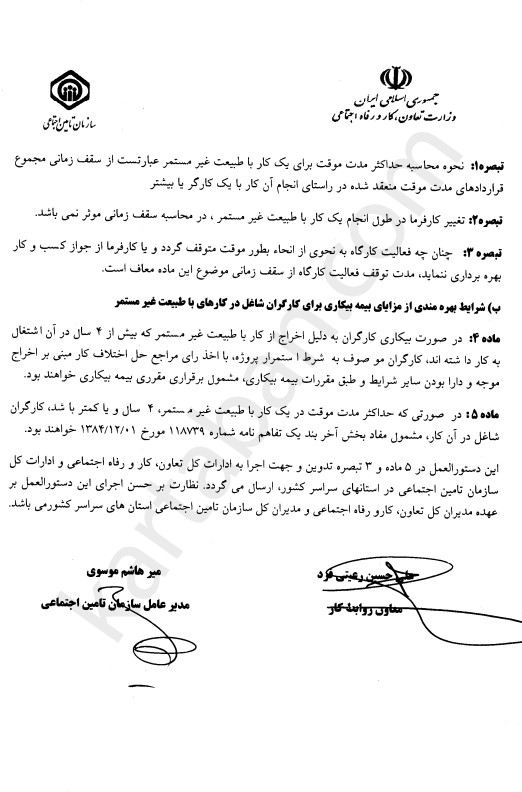 جمهوری اسلامی ایران
وزارت تعاون، کار و رفاه اجتماعی
سازمان تامین اجتماعی
تبصره۱: نحوه محاسبه حداکثر مدت موقت برای یک کار با طبیعت غیر مستمر عبارتست از سقف زمانی مجموع
قراردادهای مدت موقت منعقد شده در راستای انجام آن کار با یک کارگر یا بیشتر
تبصره۲: تغییر کارفرما در طول انجام یک کار با طبیعت غیر مستمر ، در محاسبه سقف زمانی موثر نمی باشد.
تبصره ۳: چنان چه فعالیت کارگاه به نحوی از انحاء بطور موقت متوقف گردد و یا کارفرما از جواز کسب و کار
بهره برداری ننماید، مدت توقف فعالیت کارگاه از سقف زمانی موضوع این ماده معاف است.
ب) شرایط بهره مندی از مزایای بیمه بیکاری برای کارگران شاغل در کارهای با طبیعت غیر مستمر
ماده ۴: در صورت بیکاری کارگران به دلیل اخراج از کار با طبیعت غیر مستمر که بیش از ۴ سال در آن اشتغال
به کار دا شته اند، کارگران مو صوف به شرط ا ستمرار پروژه، با اخذ رای مراجع حل اختلاف کار مبنی بر اخراج
موجه و دارا بودن سایر شرایط و طبق مقررات بیمه بیکاری، مشمول برقراری مقرری بیمه بیکاری خواهند بود.
ماده ۵: در صورتی که حداکثر مدت موقت در یک کار با طبیعت غیر مستمر، ۴ سال و یا کمتر با شد، کارگران
شاغل در آن کار، مشمول مفاد بخش آخر بند یک تفاهم نامه شماره ۱۱۸۷۳۹ مورخ ۱۳۸۴/۱۲/۰۱ خواهند بود.
این دستورالعمل در ۵ ماده و ۳ تبصره تدوین و جهت اجرا به ادارات کل تعاون، کار و رفاه اجتماعی و ادارات کل
سازمان تامین اجتماعی در استانهای سراسر کشور، ارسال می گردد. نظارت بر حسن اجرای این دستورالعمل بر
عهده مدیران کل تعاون، کارو رفاه اجتماعی و مدیران کل سازمان تامین اجتماعی استان های سراسر کشورمی باشد.
علی حسین رعیتی فرد
معاون روابط کار
میر هاشم موسوی
مدیر عامل سازمان تامین اجتماعی
kartaban.com